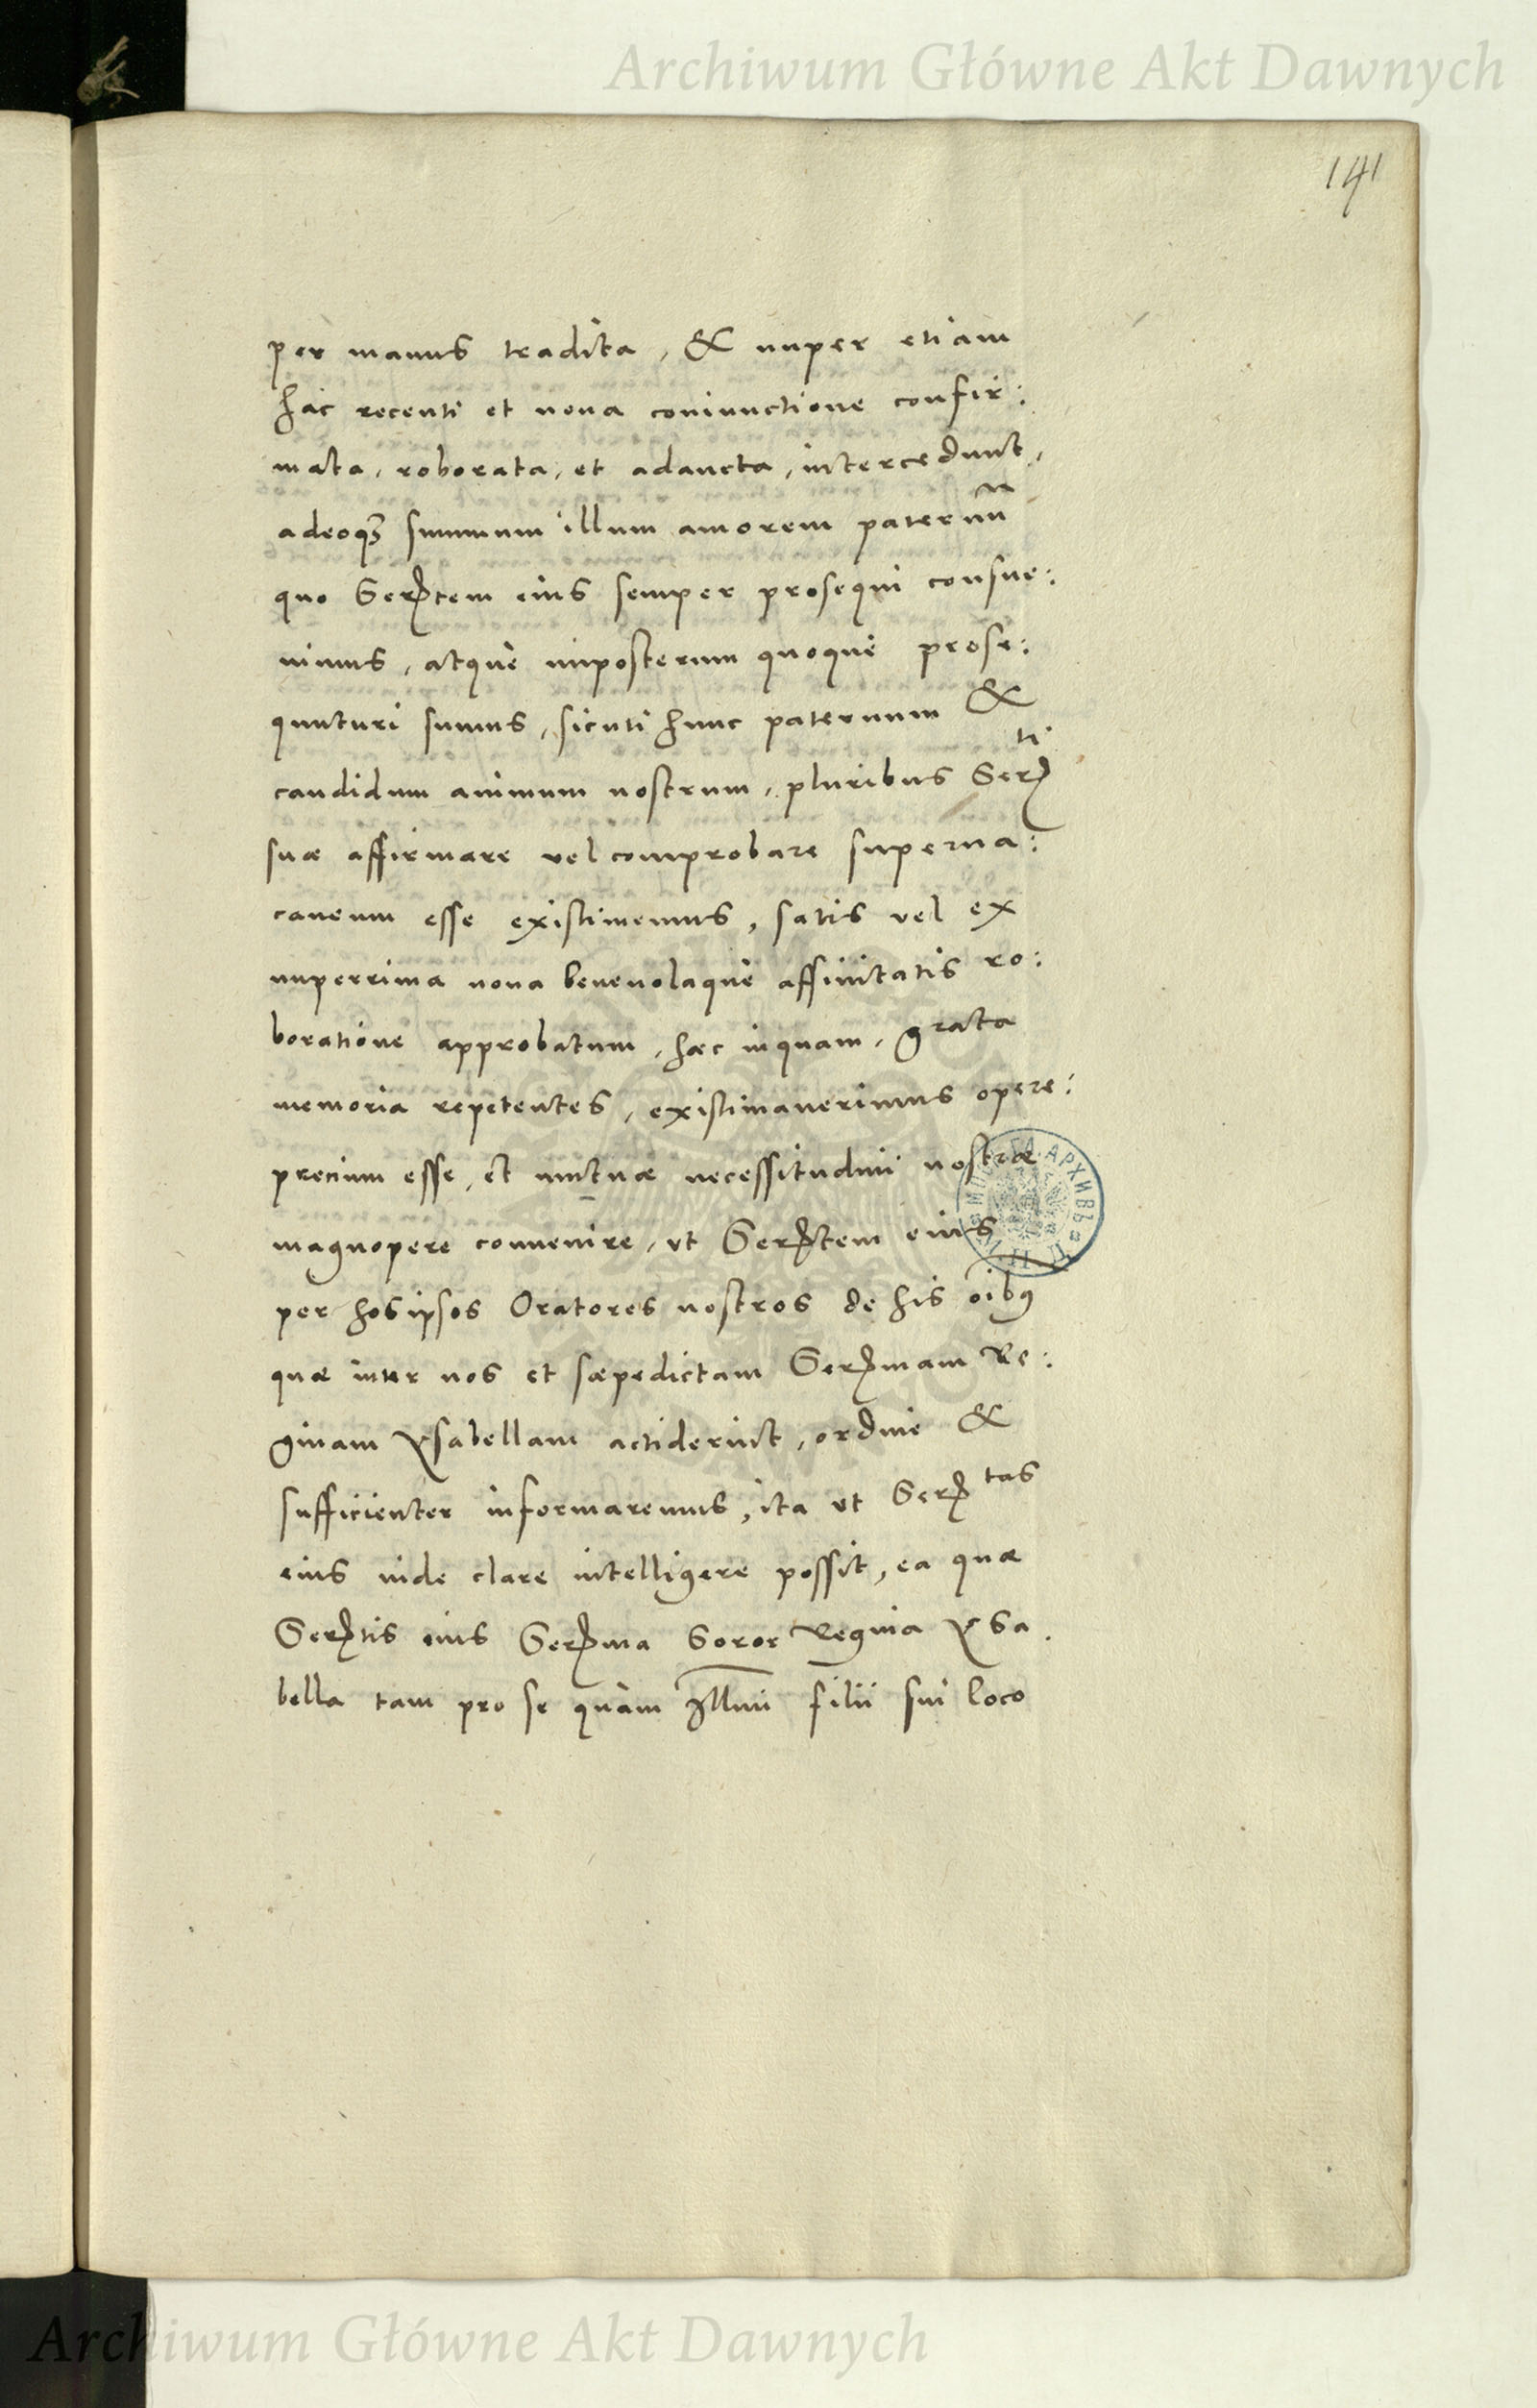 Archiwum Główne Akt Dawnych
141
per manus tradita, & nuper etiam
hac recenti et noua coniunctione confir:
mata, roborata, et adaucta, intercedunt,
adeoq3 summum illum amorem paternū
quo Serᵗem eius semper prosequi consue:
uimus, atque imposterum quoque prose:
quuturi sumus, sicuti hunc paternum &
candidum animum nostrum, pluribus Serᵗⁱ
suæ affirmare vel comprobare superua:
caneum esse existimemus, satis vel ex
nuperrima noua beneuolaque affinitatis ro:
boratione approbatum, hæc inquam, grata
memoria repetentes, existimauerimus opere:
precium esse, et mutuæ necessitudini nostræ
magnopere conuenire, vt Serᵗem eius
per hos ipsos Oratores nostros de his oībꝯ
quæ inter nos et sæpedictam Serᵐam Re:
ginam Ysabellam actiderint, ordine &
sufficienter informaremus, ita vt Serᵗᵃˢ
eius inde clare intelligere possit, ea quæ
Serᵗis eius Serᵐa Soror Regina Ysa.
bella tam pro se quàm Illmi filii sui loco
Archiwum Główne Akt Dawnych